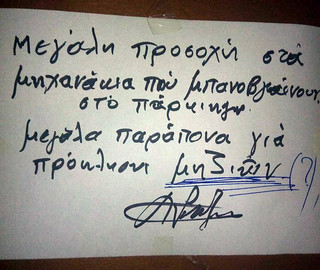 Μεγάλη προσοχή στά
μηχανάκια πού μπαινοβγαίνουν
στο πάρκινγκ.
μεγάλα παράπονα γιά
πρόκληση μηζιών (?)